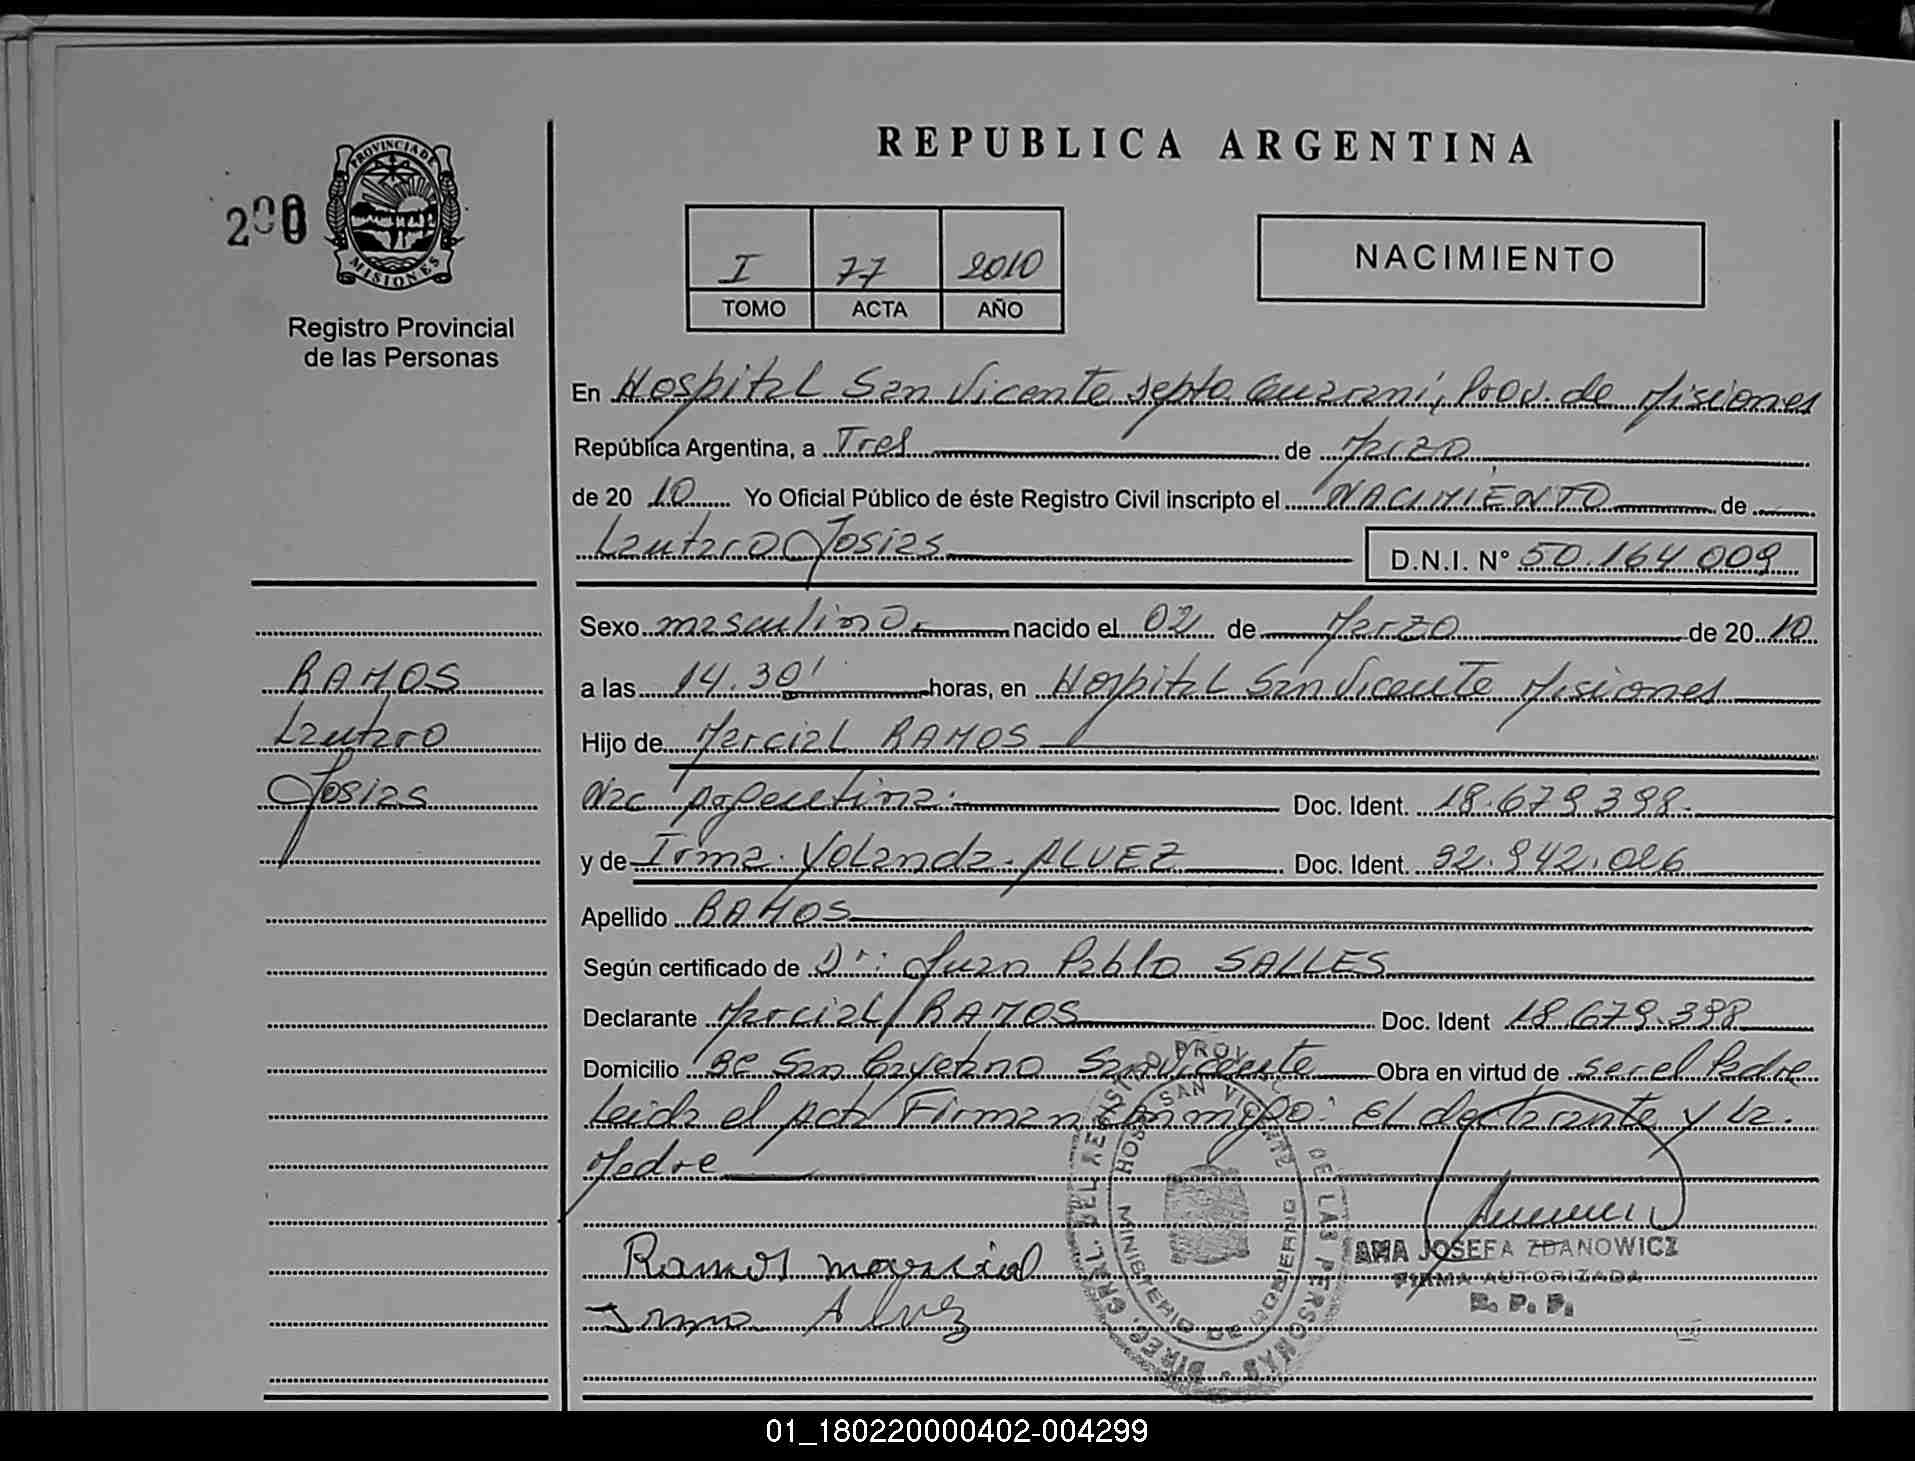 REPUBLICA ARGENTINA
PROVINCIA DE
MISIONES
Registro Provincial
de las Personas
I 77 2010
TOMO ACTA AÑO
NACIMIENTO
En Hospital San Vicente Depto. Guaraní, Prov. de Misiones
República Argentina, a Tres de Marzo
de 20 10 Yo Oficial Público de éste Registro Civil inscripto el NACIMIENTO de
Lautaro Josias D.N.I. N° 50.164.009
Sexo masculino. nacido el 02 de Marzo de 20 10
RAMOS
Lautaro
Josias
a las 14.30' horas, en Hospital San Vicente Misiones
Hijo de Marcial RAMOS
Nac Argentina. Doc. Ident. 18.679.398.
y de Irma. Yolanda. ALVEZ Doc. Ident. 32.942.026
Apellido RAMOS
Según certificado de Dr: Juan Pablo SALLES
Declarante Marcial RAMOS Doc. Ident 18.679.398
Domicilio Bº San Cayetano San Vicente Obra en virtud de ser el Padre
Leida el Acta Firman conmigo: El declarante y la.
Madre
Ramos marcial
Irma Alvez
DIREC. GRAL. DEL REGISTRO PROV. DE LAS PERSONAS
HOSP. SAN VICENTE
MINISTERIO DE GOBIERNO
ANA JOSEFA ZDANOWICZ
FIRMA AUTORIZADA
R. P. P.
01_180220000402-004299